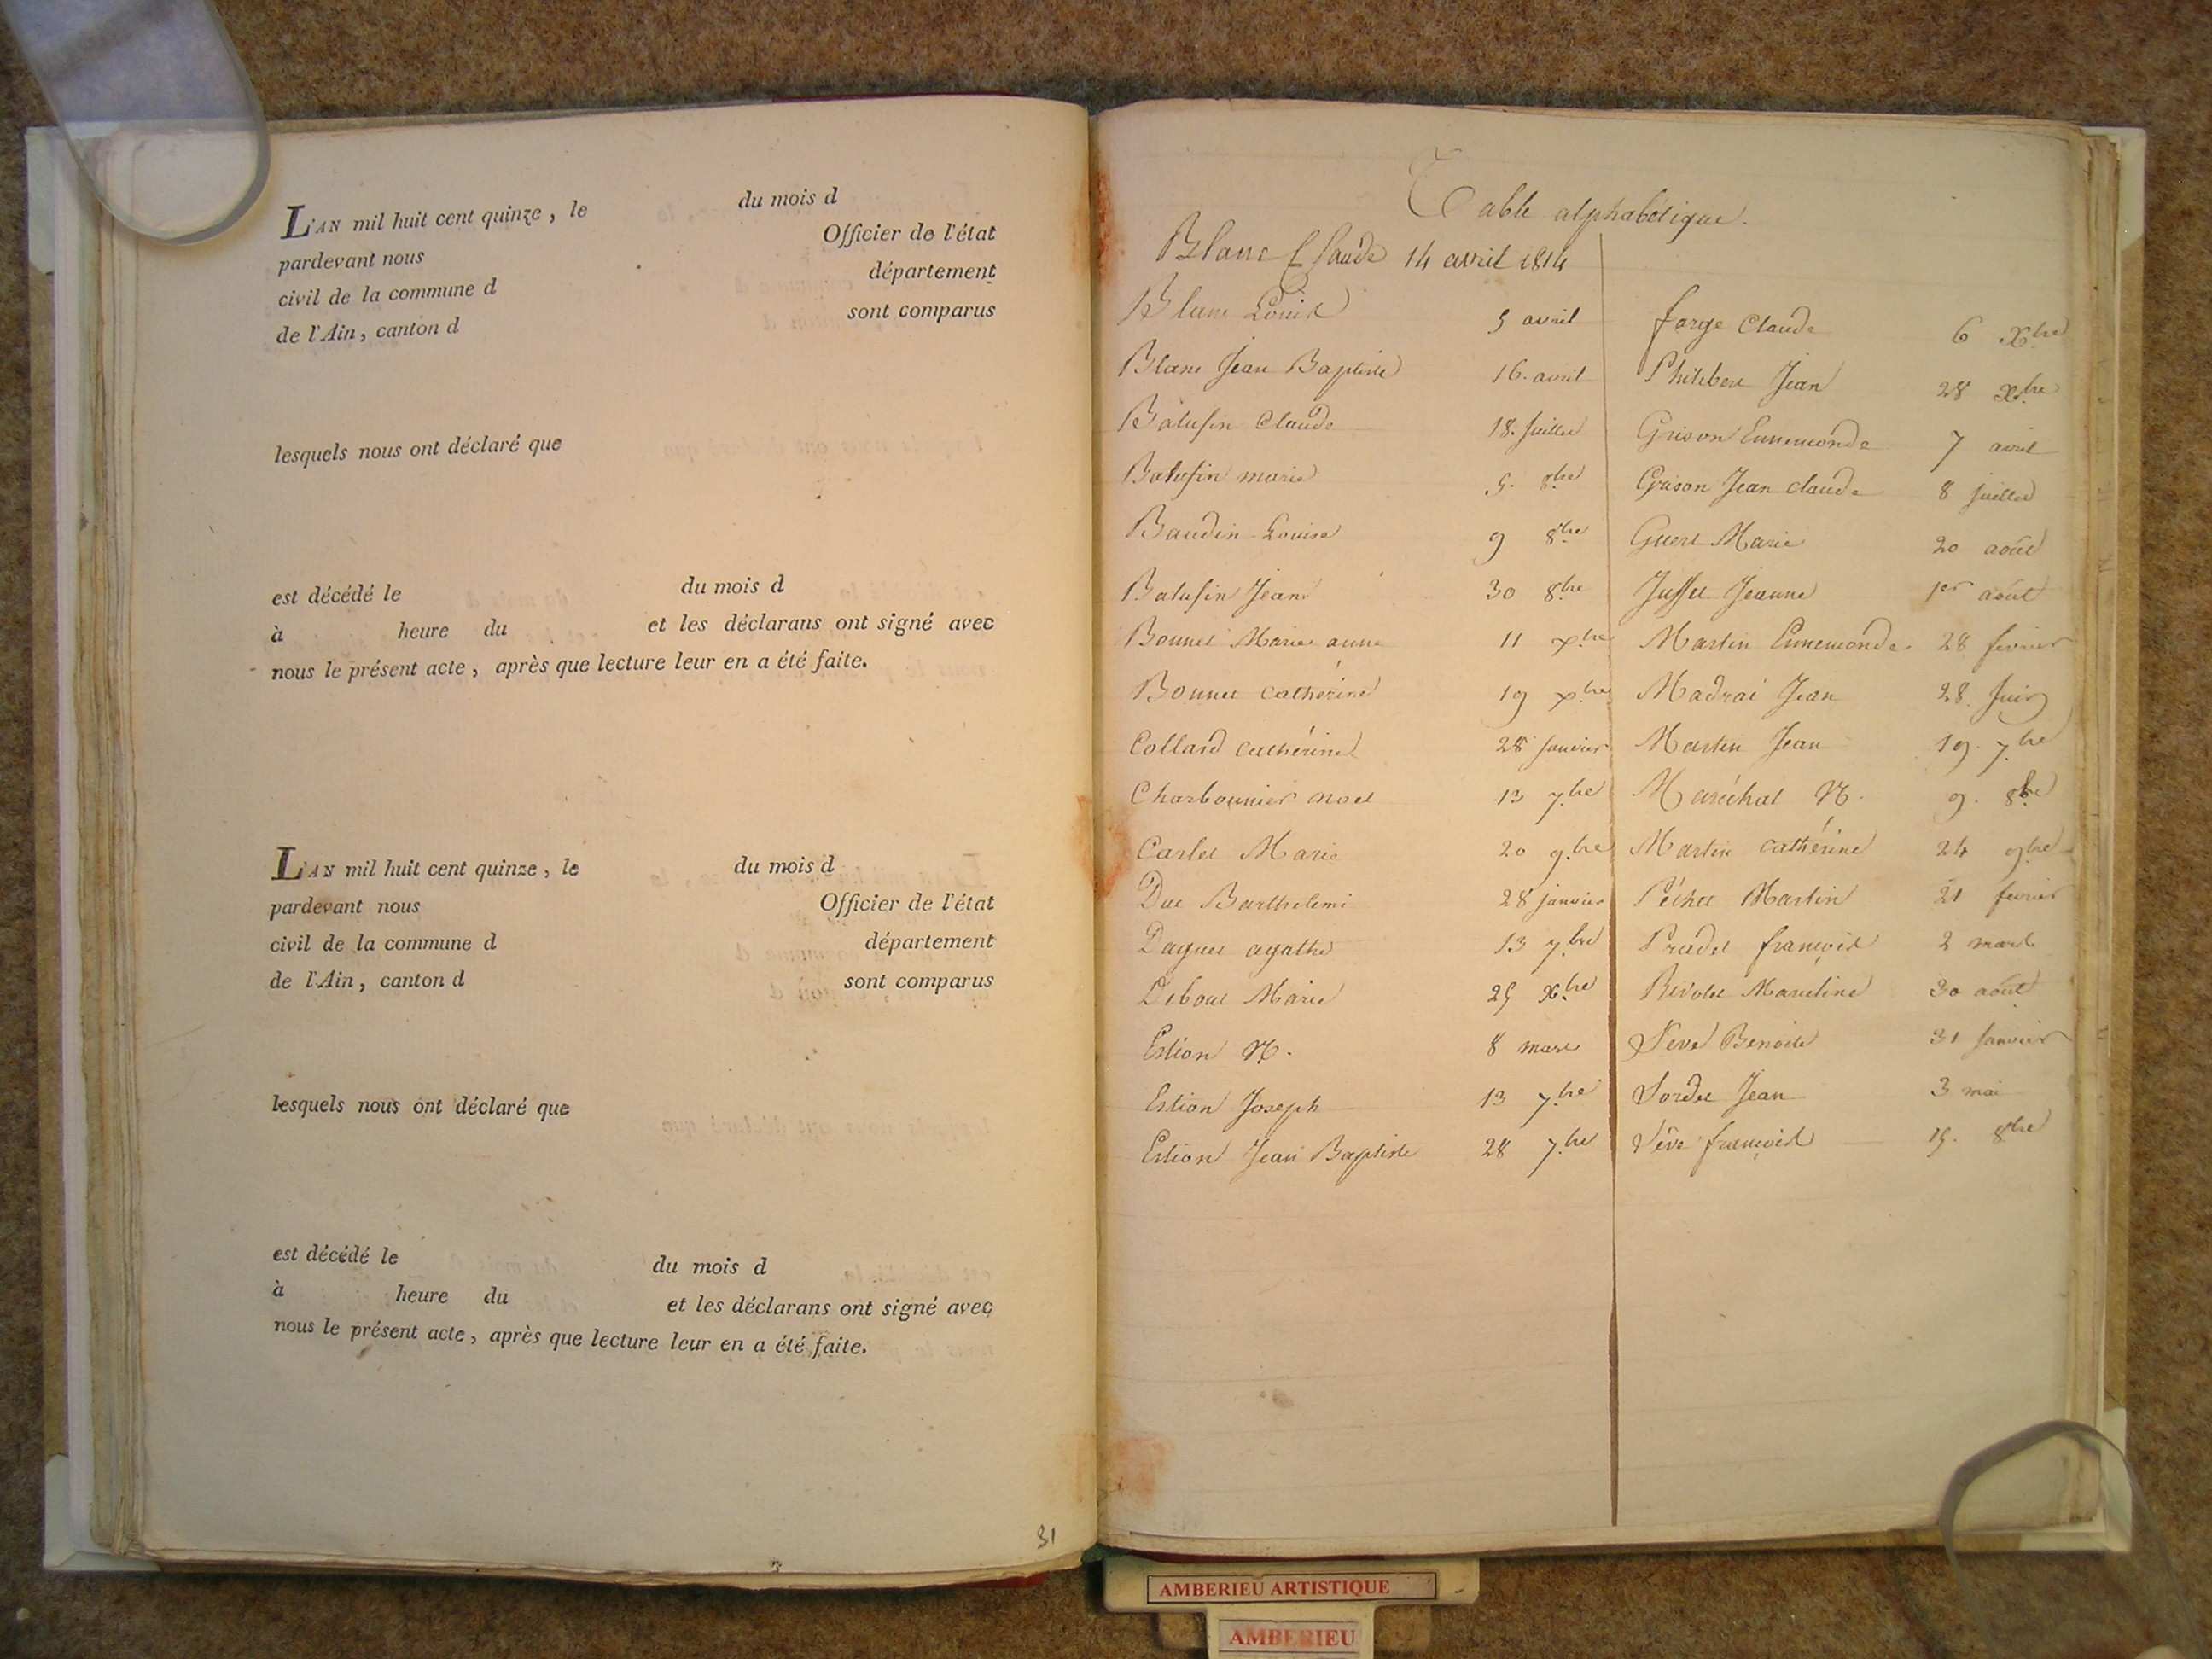 L'AN mil huit cent quinze, le du mois d
pardevant nous Officier de l'état
civil de la commune d département
de l'Ain, canton d sont comparus
lesquels nous ont déclaré que
est décédé le du mois d
à heure du et les déclarans ont signé avec
nous le présent acte, après que lecture leur en a été faite.
L'AN mil huit cent quinze, le du mois d
pardevant nous Officier de l'état
civil de la commune d département
de l'Ain, canton d sont comparus
lesquels nous ont déclaré que
est décédé le du mois d
à heure du et les déclarans ont signé avec
nous le présent acte, après que lecture leur en a été faite.
31
Table alphabétique.
Blanc Claude 14 avril 1814
Blanc Louis 5 avril
Blanc Jean Baptiste 16. avril
Batusin Claude 18. Juillet
Batusin marie 5. 8bre
Baudin Louise 9 8bre
Batusin Jean 30 8bre
Bonnet Marie anne 11 xbre
Bonnet Cathérine 19 xbre
Collard Cathérine 28 Janvier
Charbonnier Noel 13 7bre
Carlet Marie 20 9bre
Duc Barthelemi 28 janvier
Daguet agathe 13 7bre
Debout Marie 25 Xbre
Estion N. 8 mars
Estion Joseph 13 7bre
Estion Jean Baptiste 28 7bre
forge Claude 6 Xbre
Philibert Jean 28 Xbre
Grison Ennemonde 7 avril
Grison Jean claude 8 juillet
Guert Marie 20 août
Jusset Jeanne 1er août
Martin Ennemonde 28 fevrier
Madrai Jean 28. Juin
Martin Jean 19. 7bre
Maréchal N. 9. 8bre
Martin Cathérine 24 9bre
Péchet Martin 21 fevrier
Pradel françois 2 mars
Revolet Marceline 30 août
Seve Benoite 31 Janvier
Sordet Jean 3 mai
Sève françois 15. 8bre
AMBERIEU ARTISTIQUE
AMBERIEU